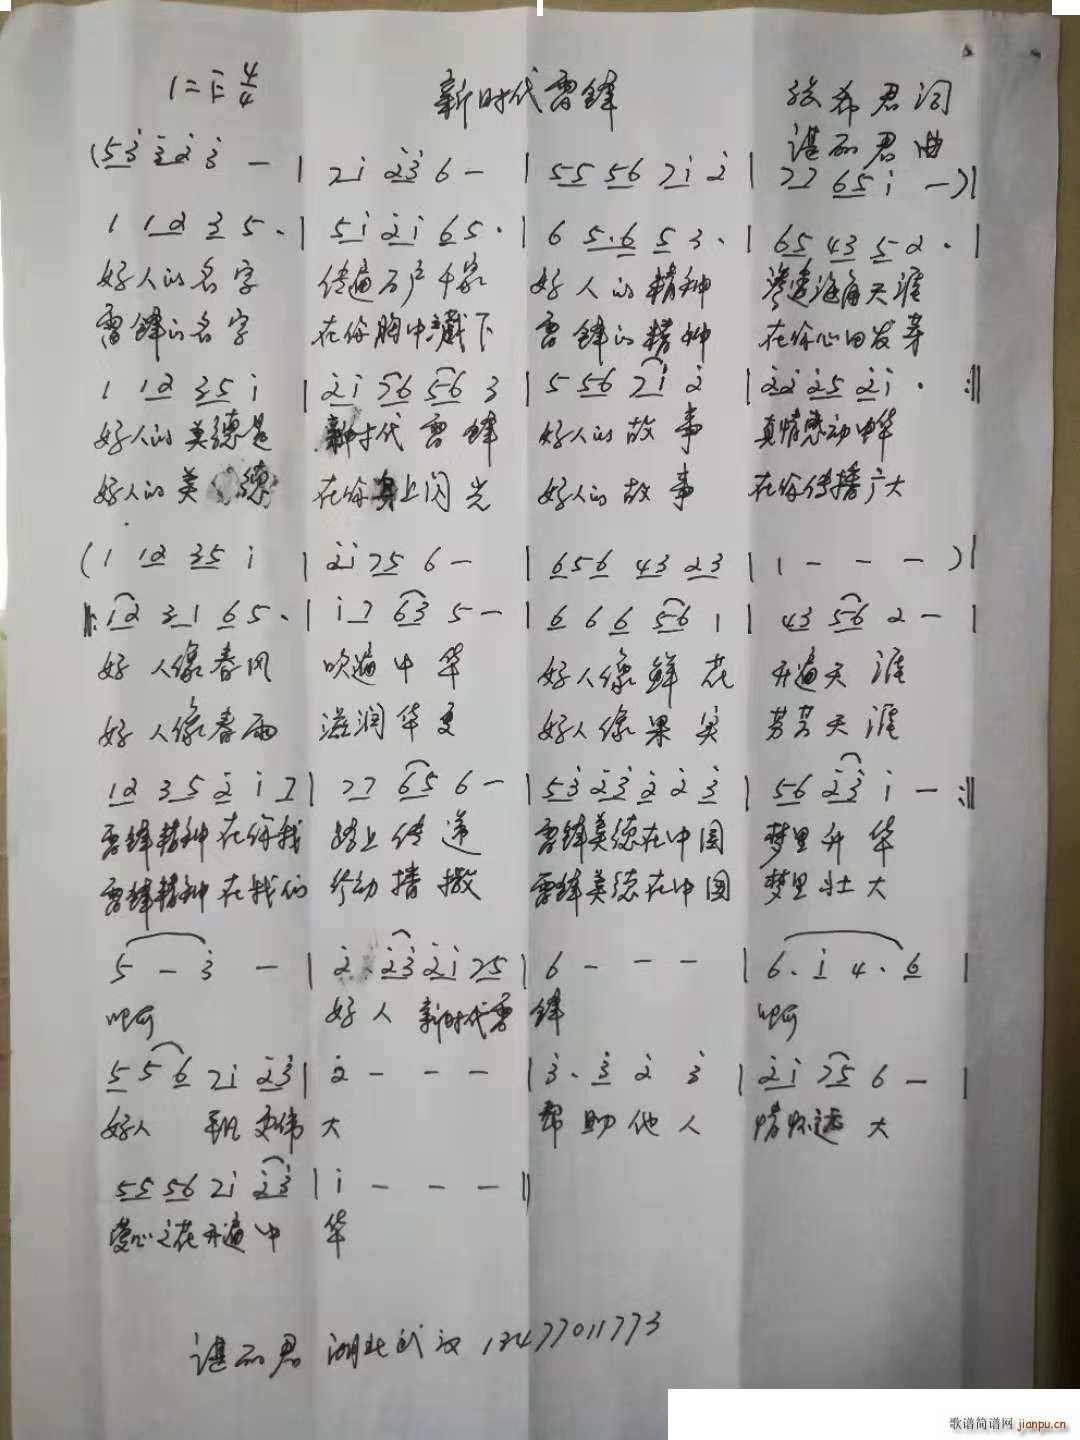 1=F 4/4 新时代雷锋 张希君词
谌丽君曲
(53 323 - | 21 23 6 - | 55 56 21 2 | 77 65 1 -)|
1 12 3 5. | 51 21 65. | 6 5.6 5 3. | 65 43 5 2. |
好人的名字 传遍万户千家 好人的精神 渗透海角天涯
雷锋的名字 在你胸中藏下 雷锋的精神 在你心田发芽
1 12 35 1 | 21 76 56 3 | 5 56 71 2 | 22 25 21. :||
好人的美德是 新时代雷锋 好人的故事 真情感动中华
好人的美德 在你身上闪光 好人的故事 在你传播广大
(1 12 35 1 | 21 75 6 - | 656 43 23 | 1 - - -)|
||: 12 31 65. | 17 63 5 - | 6 6 6 56 1 | 43 56 2 - |
好人像春风 吹遍中华 好人像鲜花 开遍天涯
好人像春雨 滋润华夏 好人像果实 芬芳天涯
12 35 2 1 7 | 77 65 6 - | 53 23 2 2 3 | 56 23 1 - :||
雷锋精神在你我 路上传递 雷锋美德在中国 梦里升华
雷锋精神在我们 行动播撒 雷锋美德在中国 梦里壮大
5 - 3 - | 2. 23 21 75 | 6 - - - | 6. 1 4. 6 |
啊 好人 新时代雷锋 啊
5 5 6 21 23 | 2 - - - | 3. 3 2 3 | 21 75 6 - |
好人 平凡更伟大 帮助他人 情怀远大
55 56 21 23 | 1 - - - ||
爱心之花开遍中华
谌丽君 湖北武汉 13477011773
歌谱简谱网 jianpu.cn